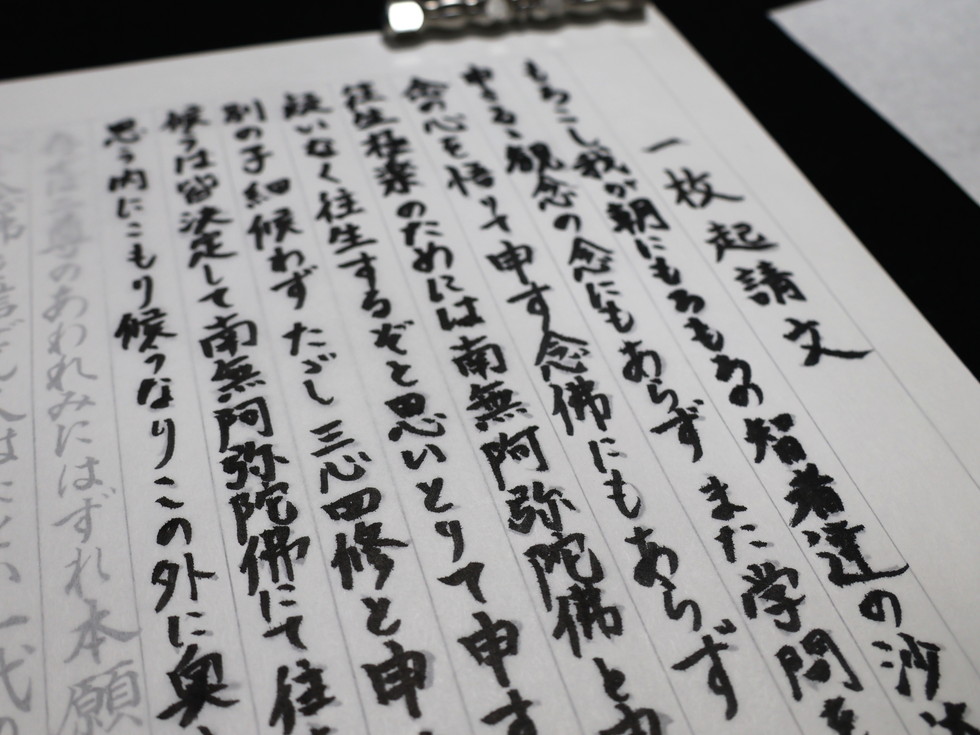 一枚起請文
もろこし我が朝にもろもろの智者達の沙汰
申さるゝ観念の念にもあらずまた学問を
念の心を悟りて申す念佛にもあらず
往生極楽のためには南無阿弥陀佛と申
疑いなく往生するぞと思いとりて申す
別の子細候わずたゞし三心四修と申
候うは皆決定して南無阿弥陀佛にて往
思う内にこもり候うなりこの外に奥
尊のあわれみにはずれ本願
念佛を信ぜん人はたとい一代の